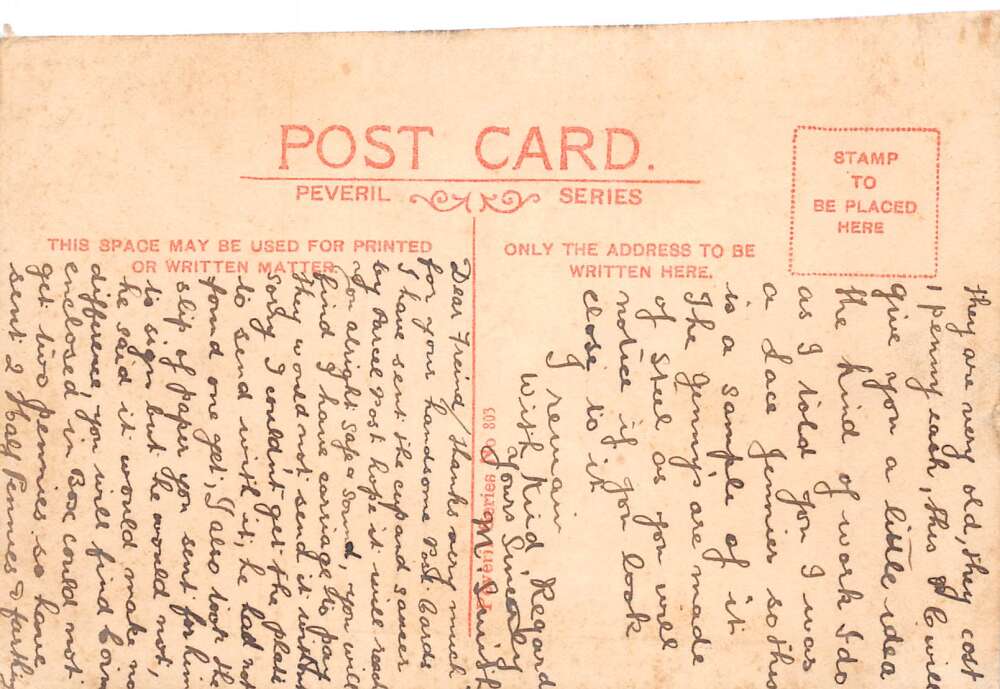 POST CARD.
PEVERIL SERIES
THIS SPACE MAY BE USED FOR PRINTED
OR WRITTEN MATTER.
ONLY THE ADDRESS TO BE
WRITTEN HERE.
STAMP
TO
BE PLACED
HERE
Dear Freind, thanks very much
for your handsome Post Cards
I have sent the cup and saucer
by Parcel Post hope it will reach
you alright safe & sound, you will
find I have cariage to pay
they would not send it without
sorry I couldn't get the plate
to send with it, he had not
found one yet, I also took the
slip of paper you sent for him
to sign but he would not,
he said it would make no
difference, you will find Coin
enclosed in Box could not
get two Pennies so have
sent 2 Half Pennies & farthing
they are very old, they cost
1 penny each, this P C will
give you a little idea
the kind of work I do
as I told you I was
a Lace Jennier so this
is a sample of it
The Jennys are made
of Steel as you will
notice if you look
close to it
I remain
With Kind Regards
Yours Sincerely
Smith
803